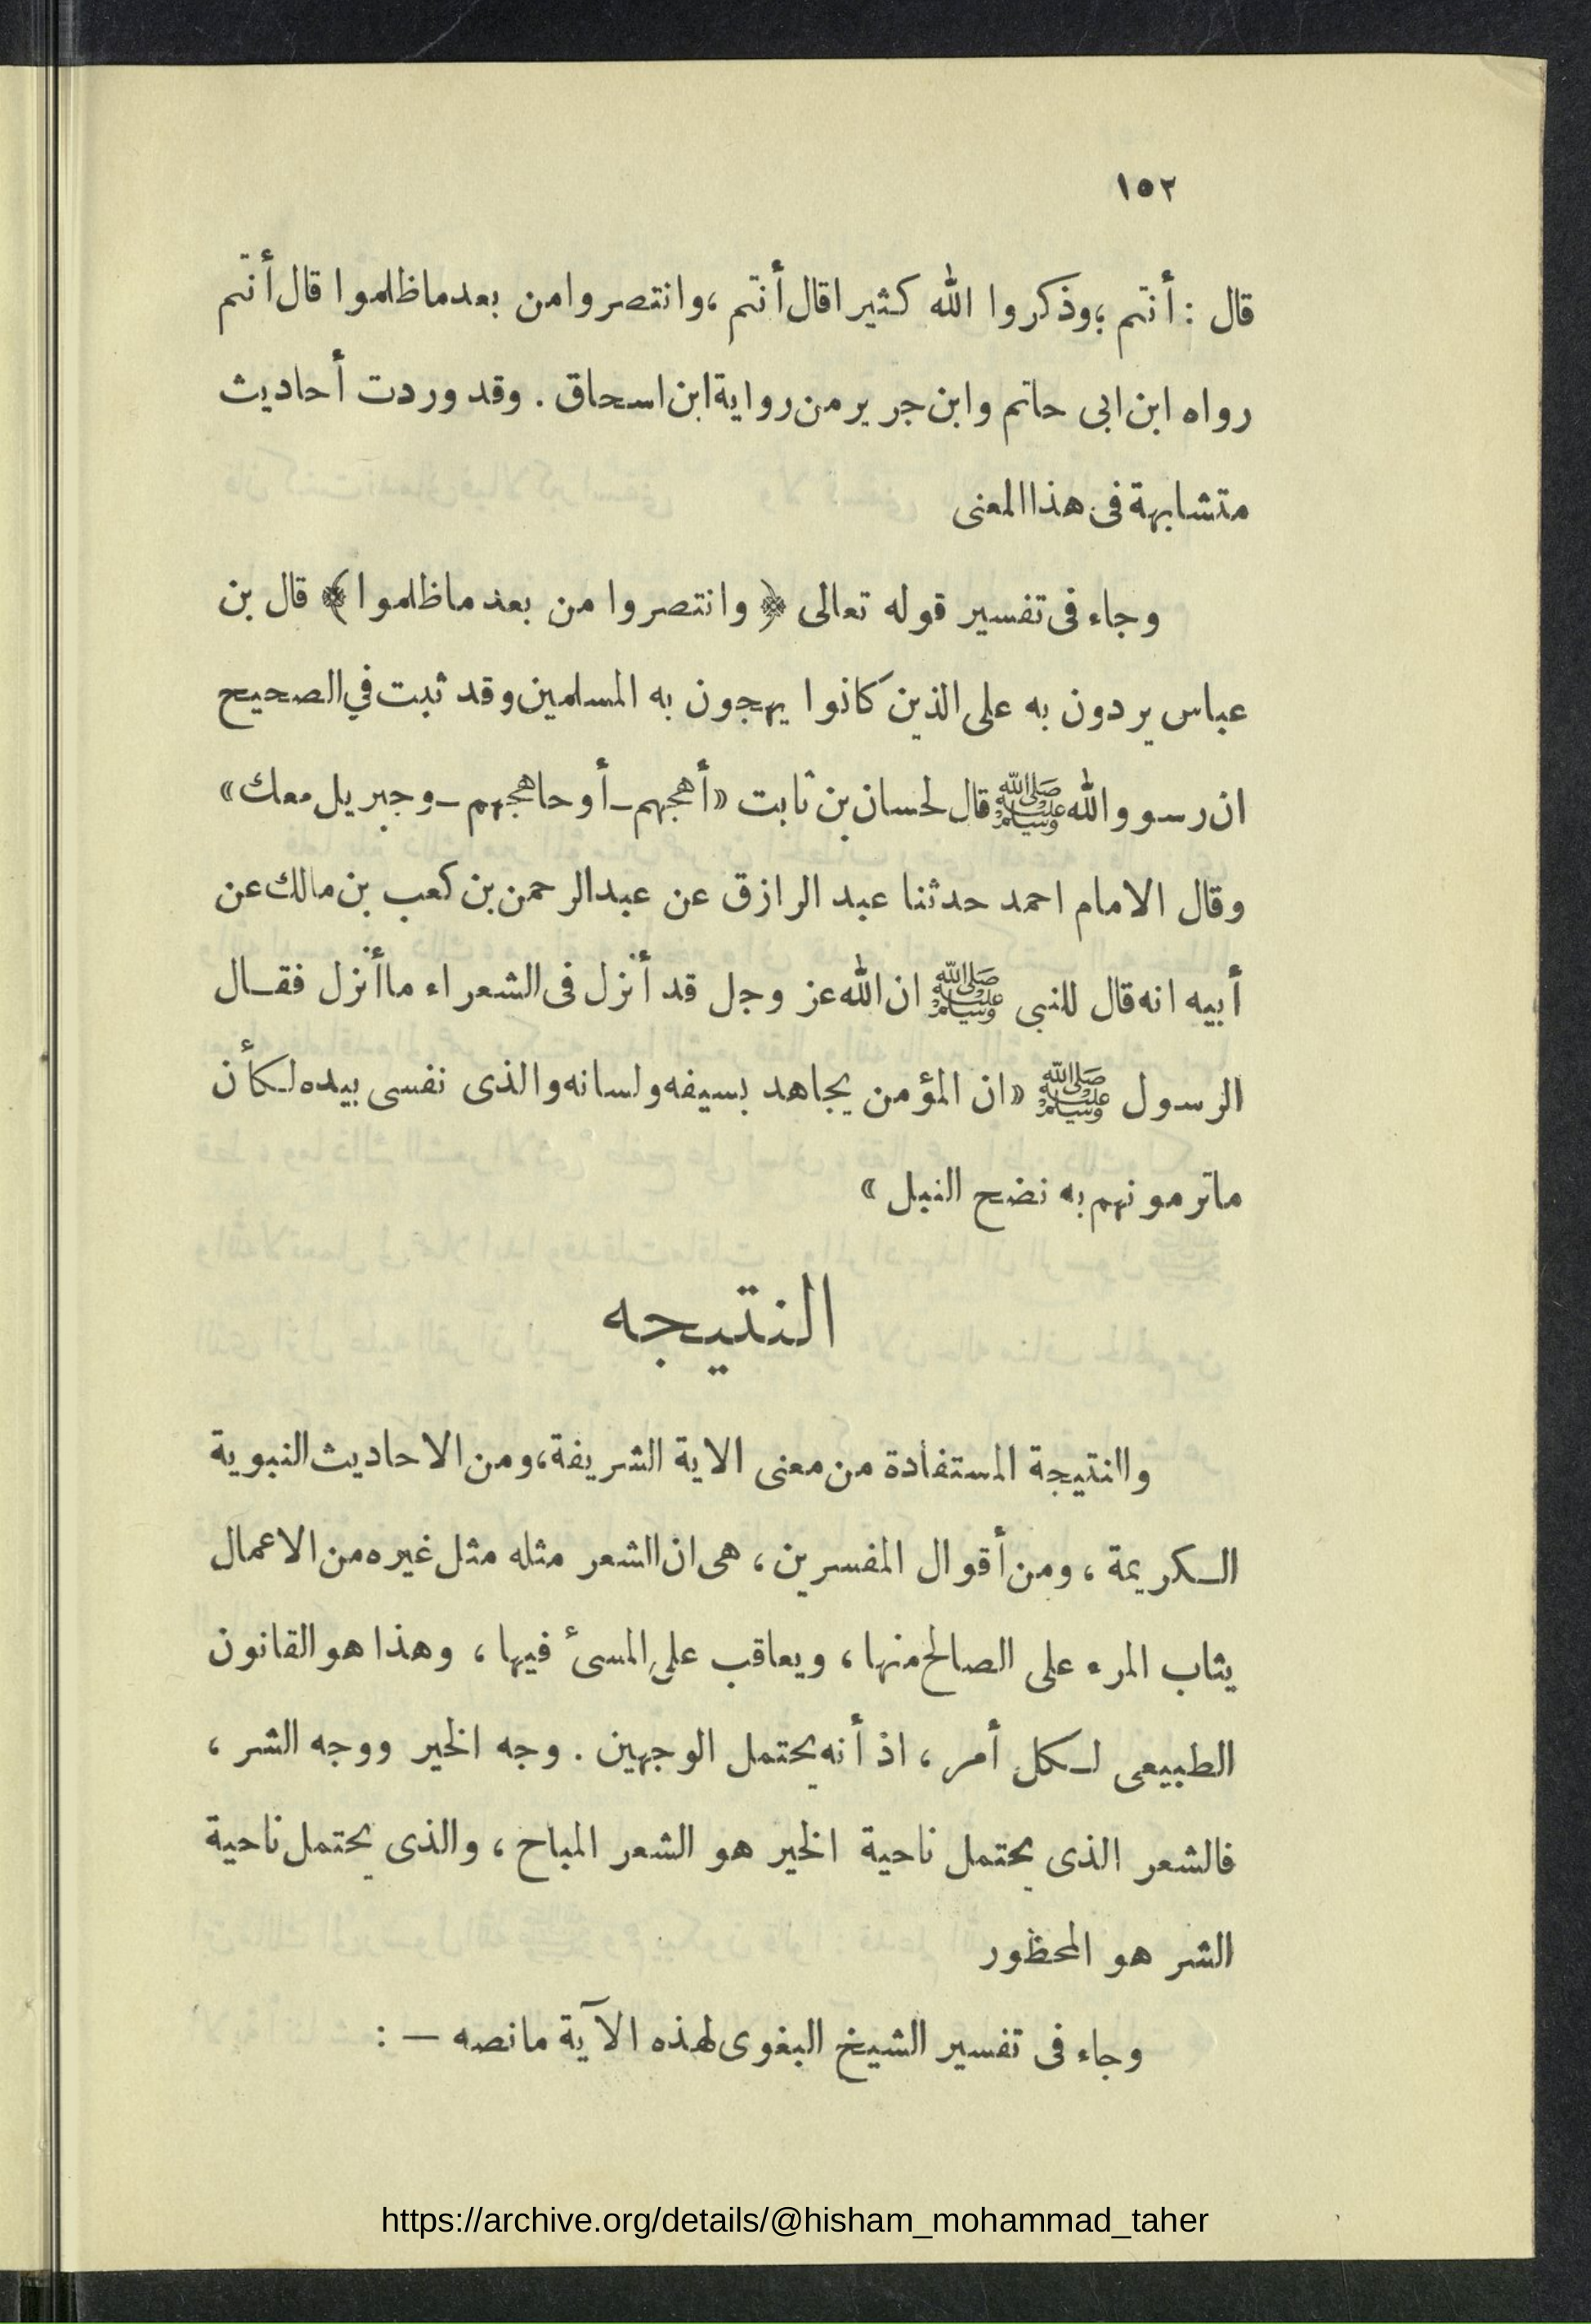 ١٥٢
قال : أنتم ؛وذكروا الله كثيرا قال أنتم ،وانتصروا من بعد ما ظلموا قال أنتم
رواه ابن ابى حاتم وابن جرير من رواية ابن اسحاق . وقد وردت أحاديث
متشابهة فى هذا المعنى
وجاء فى تفسير قوله تعالى ﴿ وانتصروا من بعد ما ظلموا ﴾ قال بن
عباس يردون به على الذين كانوا يهجون به المسلمين وقد ثبت في الصحيح
ان رسو والله ﷺ قال لحسان بن ثابت «أهجهم ـ أو حاهجهم ـ وجبريل معك»
وقال الامام احمد حدثنا عبد الرازق عن عبد الرحمن بن كعب بن مالك عن
أبيه انه قال للنبى ﷺ ان الله عز وجل قد أنزل فى الشعراء ما أنزل فقـال
الرسول ﷺ «ان المؤمن يجاهد بسيفه ولسانه والذى نفسى بيده لكأن
ماترمونهم به نضح النبل »
النتيجه
واانتيجة المستفادة من معنى الاية الشريفة، ومن الاحاديث النبوية
الـكريمة ، ومن أقوال المفسرين ، هى ان الشعر مثله مثل غيره من الاعمال
يثاب المرء على الصالح منها ، ويعاقب على المسىء فيها ، وهذا هو القانون
الطبيعى لـكل أمر ، اذ أنه يحتمل الوجهين . وجه الخير ووجه الشر ،
فالشعر الذى يحتمل ناحية الخير هو الشعر المباح ، والذى يحتمل ناحية
الشر هو المحظور
وجاء فى تفسير الشيخ البغوى لهذه الآية مانصه — :
https://archive.org/details/@hisham_mohammad_taher